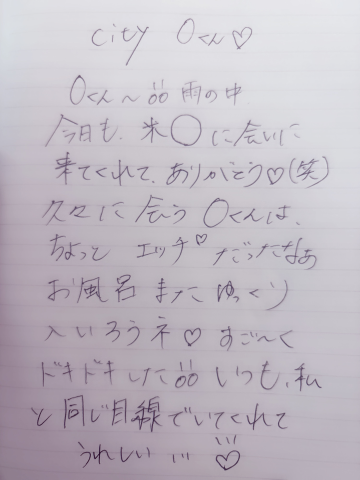 city Oくん♡
Oくん〜!! 雨の中
今日も、米〇に会いに
来てくれて、ありがとう♡(笑)
久々に会うOくんは、
ちょっとエッチ♡だったなぁ
お風呂またゆっくり
入いろうネ♡すご〜く
ドキドキした!! いつも、私
と同じ目線でいてくれて
うれしい…♡